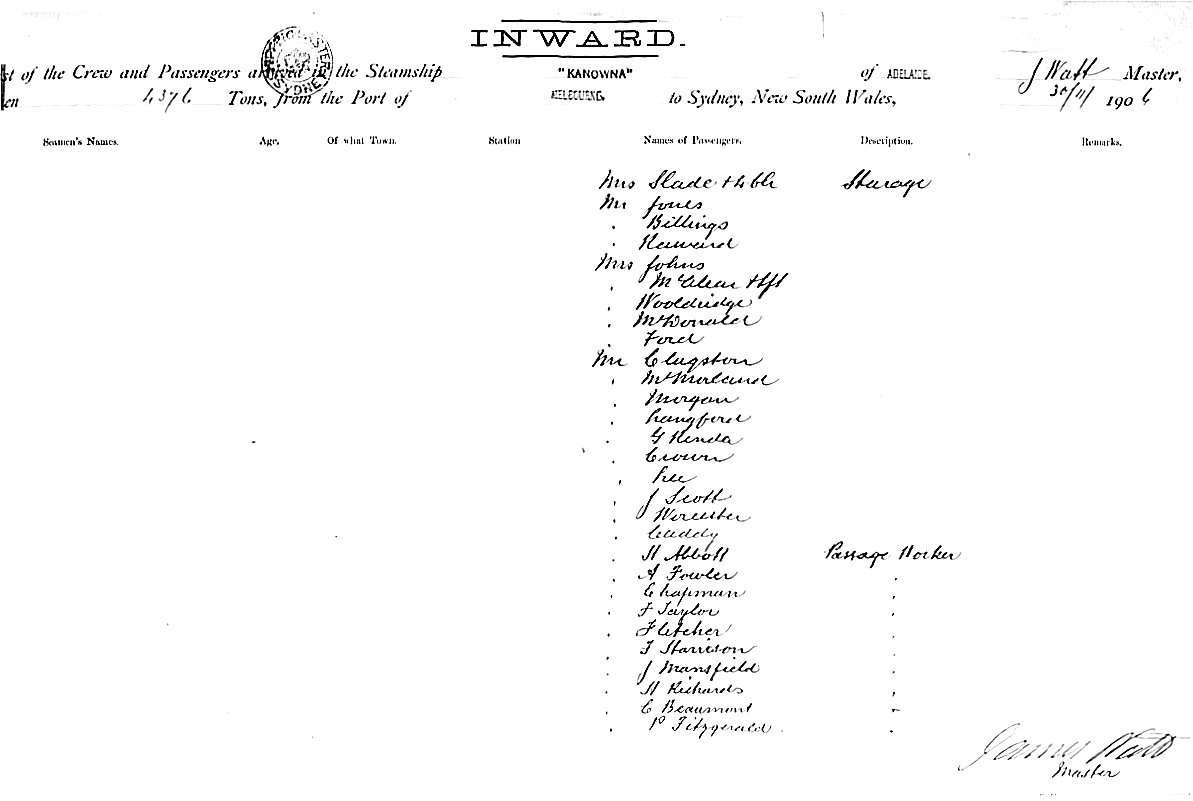 INWARD.
st of the Crew and Passengers arrived in the Steamship "KANOWNA" of ADELAIDE, J Watt Master,
en 4376 Tons, from the Port of MELBOURNE, to Sydney, New South Wales, 30/11/ 1906
Seamen's Names. Age. Of what Town. Station Names of Passengers. Description. Remarks.
Mrs Slade & 4 Ch Sturage
Mr Jones
" Billings
"
Mrs Johns
" McClear
" Wooldridge
" McDonald
" Ford
Mr Clugston
" McMorland
" Morgan
" Langford
" G Kenda
" Crown
" Lee
" J Scott
" Worcester
" Cuddy
" H Abbott Passage Worker
" A Fowler "
" Chapman "
" F Taylor "
" Fletcher "
" F Harrison "
" J Mansfield "
" H Richards "
" C Beaumont "
" P Fitzgerald "
James Watt
Master